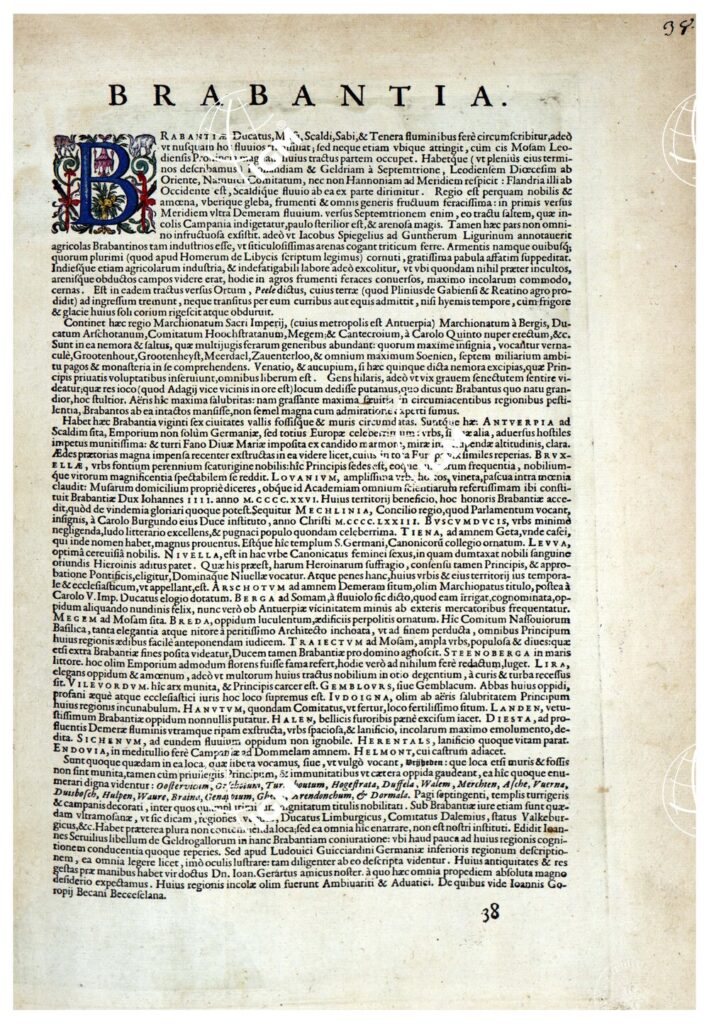 38.
BRABANTIA.
BRABANTIÆ Ducatus, Mosa, Scaldi, Sabi, & Tenera fluminibus ferè circumscribitur, adeò
vt nusquam ho fluuios transiliat; sed neque etiam vbique attingit, cùm cis Mosam Leo-
diensis Prouincia magnam huius tractus partem occupet. Habetque (vt pleniùs eius termi-
nos describamus) Hollandiam & Geldriam à Septemtrione, Leodiensem Diœcesim ab
Oriente, Namurcî Comitatum, nec non Hannoniam ad Meridiem respicit: Flandria illi ab
Occidente est, Scaldique fluuio ab ea ex parte dirimitur. Regio est perquam nobilis &
amœna, vberique gleba, frumenti & omnis generis fructuum feracissima: in primis versus
Meridiem vltra Demeram fluuium. versus Septemtrionem enim, eo tractu saltem, quæ in-
colis Campania indigetatur, paulo sterilior est, & arenosa magis. Tamen hæc pars non omni-
no infructuosa existit. adeò vt Iacobus Spiegelius ad Guntherum Ligurinum annotauerit
agricolas Brabantinos tam industrios esse, vt siticulosissimas arenas cogant triticum ferre. Armentis namque ouibusq́;
quorum plurimi (quod apud Homerum de Libycis scriptum legimus) cornuti, gratissima pabula affatim suppeditat.
Indiesque etiam agricolarum industria, & indefatigabili labore adeò excolitur, vt vbi quondam nihil præter incultos,
arenisque obductos campos videre erat, hodie in agros frumenti feraces conuersos, maximo incolarum commodo,
cernas. Est in eadem tractus versus Ortum, Peele dictus, cuius terræ (quod Plinius de Gabiensi & Reatino agro pro-
didit) ad ingressum tremunt, neque transitus per eum curribus aut equis admittit, nisi hyemis tempore, cùm frigore
& glacie huius soli corium rigescit atque obduruit.
Continet hæc regio Marchionatum Sacri Imperij, (cuius metropolis est Antuerpia) Marchionatum à Bergis, Du-
catum Arschotanum, Comitatum Hoochstratanum, Megem; & Cantecroium, à Carolo Quinto nuper erectum, &c.
Sunt in ea nemora & saltus, quæ multijugis ferarum generibus abundant: quorum maximè insignia, vocantur verna-
culè, Grootenhout, Grootenheyst, Meerdael, Zauenterloo, & omnium maximum Soenien, septem miliarium ambi-
tu pagos & monasteria in se comprehendens. Venatio, & aucupium, si hæc quinque dicta nemora excipias, quæ Prin-
cipis priuatis voluptatibus inseruiunt, omnibus liberum est. Gens hilaris, adeò vt vix grauem senectutem sentire vi-
deatur; quæ res ioco (quod Adagij vice vicinis in ore est) locum dedisse putamus, quo dicunt: Brabantus quo natu gran-
dior, hoc stultior. Aëris hîc maxima salubritas: nam grassante maxima sæuitia in circumiacentibus regionibus pesti-
lentia, Brabantos ab ea intactos mansisse, non semel magna cum admiratione experti sumus.
Habet hæc Brabantia viginti sex ciuitates vallis fossisque & muris circumdatas. Suntque hæ: ANTVERPIA ad
Scaldim sita, Emporium non solùm Germaniæ, sed totius Europæ celeberrimum: vrbs, si quæ alia, aduersus hostiles
impetus munitissima: & turri Fano Diuæ Mariæ imposita ex candido marmore, miræ impendæ altitudinis, clara.
Ædes prætorias magna impensa recenter exstructas in ea videre licet, cuius in tota Europa vix similes reperias. BRVX-
ELLÆ, vrbs fontium perennium scaturigine nobilis: hîc Principis sedes est, eoque aulicorum frequentia, nobilium-
que virorum magnificentia spectabilem se reddit. LOVANIVM, amplissima vrbs, hortos, vineta, pascua intra mœnia
claudit: Musarum domicilium propriè diceres, obque id Academiam omnium scientiarum refertissimam ibi consti-
tuit Brabantiæ Dux Iohannes IIII. anno M.CCCC.XXVI. Huius territorij beneficio, hoc honoris Brabantiæ acce-
dit, quòd de vindemia gloriari quoque potest. Sequitur MECHLINIA, Concilio regio, quod Parlamentum vocant,
insignis, à Carolo Burgundo eius Duce instituto, anno Christi M.CCCC.LXXIII. BVSCVMDVCIS, vrbs minimè
negligenda, ludo litterario excellens, & pugnaci populo quondam celebertima. TIENA, ad amnem Geta, vnde fasci,
qui inde nomen habet, magnus prouentus. Estque hîc templum S. Germani, Canonicorū collegio ornatum. LEVVA,
optimâ cereuisiâ nobilis. NIVELLA, est in hac vrbe Canonicatus feminei sexus, in quam dumtaxat nobili sanguine
oriundis Hieroinis aditus patet. Quæ his præest, harum Heroinarum suffragio, consensu tamen Principis, & appro-
batione Pontificis, eligitur, Dominaque Niuellæ vocatur. Atque penes hanc, huius vrbis & eius territorij ius tempora-
le & ecclesiasticum, vt appellant, est. ARSCHOTVM ad amnem Demeram situm, olim Marchiopatus titulo, postea à
Carolo V. Imp. Ducatus elogio dotatum. BERGA ad Somam, à fluuiolo sic dicto, quod eam irrigat, cognominata, op-
pidum aliquando nundinis felix, nunc verò ob Antuerpiæ vicinitatem minus ab exteris mercatoribus frequentatur.
MEGEM ad Mosam sita. BREDA, oppidum luculentum, ædificiis perpolitis ornatum. Hîc Comitum Nassouiorum
Basilica, tanta elegantia atque nitore à peritissimo Architecto inchoata, vt ad finem perducta, omnibus Principum
huius regionis ædibus facilè anteponendam iudicem. TRAIECTVM ad Mosam, ampla vrbs, populosa & diues: quæ
etsi extra Brabantiæ fines posita videatur, Ducem tamen Brabantiæ pro domino agnoscit. STEENOBERGA in maris
littore. hoc olim Emporium admodum florens fuisse fama refert, hodie verò ad nihilum ferè redactum, luget. LIRA,
elegans oppidum & amœnum, adeò vt multorum huius tractus nobilium in otio degentium, à curis & turba recessus
sit. VILEVORDVM. hîc arx munita, & Principis carcer est. GEMBLOVRS, siue Gemblacum. Abbas huius oppidi,
profani æquè atque ecclesiastici iuris hoc loco supremus est. IVDOIGNA, olim ob aëris salubritatem Principum
huius regionis incunabulum. HANVTVM, quondam Comitatus, vt fertur, loco fertilissimo situm. LANDEN, vetu-
stissimum Brabantiæ oppidum nonnullis putatur. HALEN, bellicis furoribis pænè excisum iacet. DIESTA, ad pro-
fluentis Demeræ fluminis vtramque ripam exstructa, vrbs spaciosa, & lanificio, incolarum maximo emolumento, de-
dita. SICHENVM, ad eundem fluuium oppidum non ignobile. HERENTALS, lanificio quoque vitam parat.
ENDOVIA, in meditullio ferè Campaniæ ad Dommelam amnem. HELMONT, cui castrum adiacet.
Sunt quoque quædam in ea loca, quæ libera vocamus, siue, vt vulgò vocant, Vrijheden: quæ loca etsi muris & fossis
non sint munita, tamen cùm priuilegiis Principum, & immunitatibus vt cætera oppida gaudeant, ea hîc quoque enu-
merari digna videntur: Oosterwicum, Orschium, Turnhoutum, Hogestrata, Duffela, Walem, Merchten, Assche, Vuerna,
Duisbosch, Hulpen, Waure, Braina, Genapium, Arendonchum, & Dormala. Pagi septingenti, templis turrigeris
& campanis decorati, inter quos quamplurimi magnitatum titulis nobilitati. Sub Brabantiæ iure etiam sunt quæ-
dam vltramosanæ, vt sic dicam, regiones: Ducatus Limburgicus, Comitatus Dalemius, status Valkebur-
gicus, &c. Habet præterea plura non contemnenda loca, sed ea omnia hîc enarrare, non est nostri instituti. Edidit Ioan-
nes Seruilius libellum de Geldrogallorum in hanc Brabantiam coniuratione: vbi haud pauca ad huius regionis cogni-
tionem conducentia quoque reperies. Sed apud Ludouici Guicciardini Germaniæ inferioris regionum descriptio-
nem, ea omnia legere licet, imò oculis lustrare: tam diligenter ab eo descripta videntur. Huius antiquitates & res
gestas præ manibus habet vir doctus Dn. Ioan. Gerartus amicus noster. à quo hæc omnia propediem absoluta magno
desiderio expectamus. Huius regionis incolæ olim fuerunt Ambiuariti & Aduatici. De quibus vide Ioannis Go-
ropij Becani Beccese​lana.
38